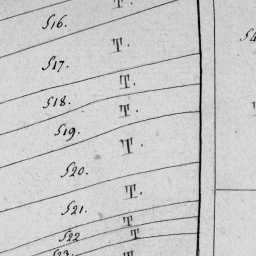 T.
516.
T.
517.
T.
518.
T.
519.
T.
520.
T.
521.
T
522
T
523.
T